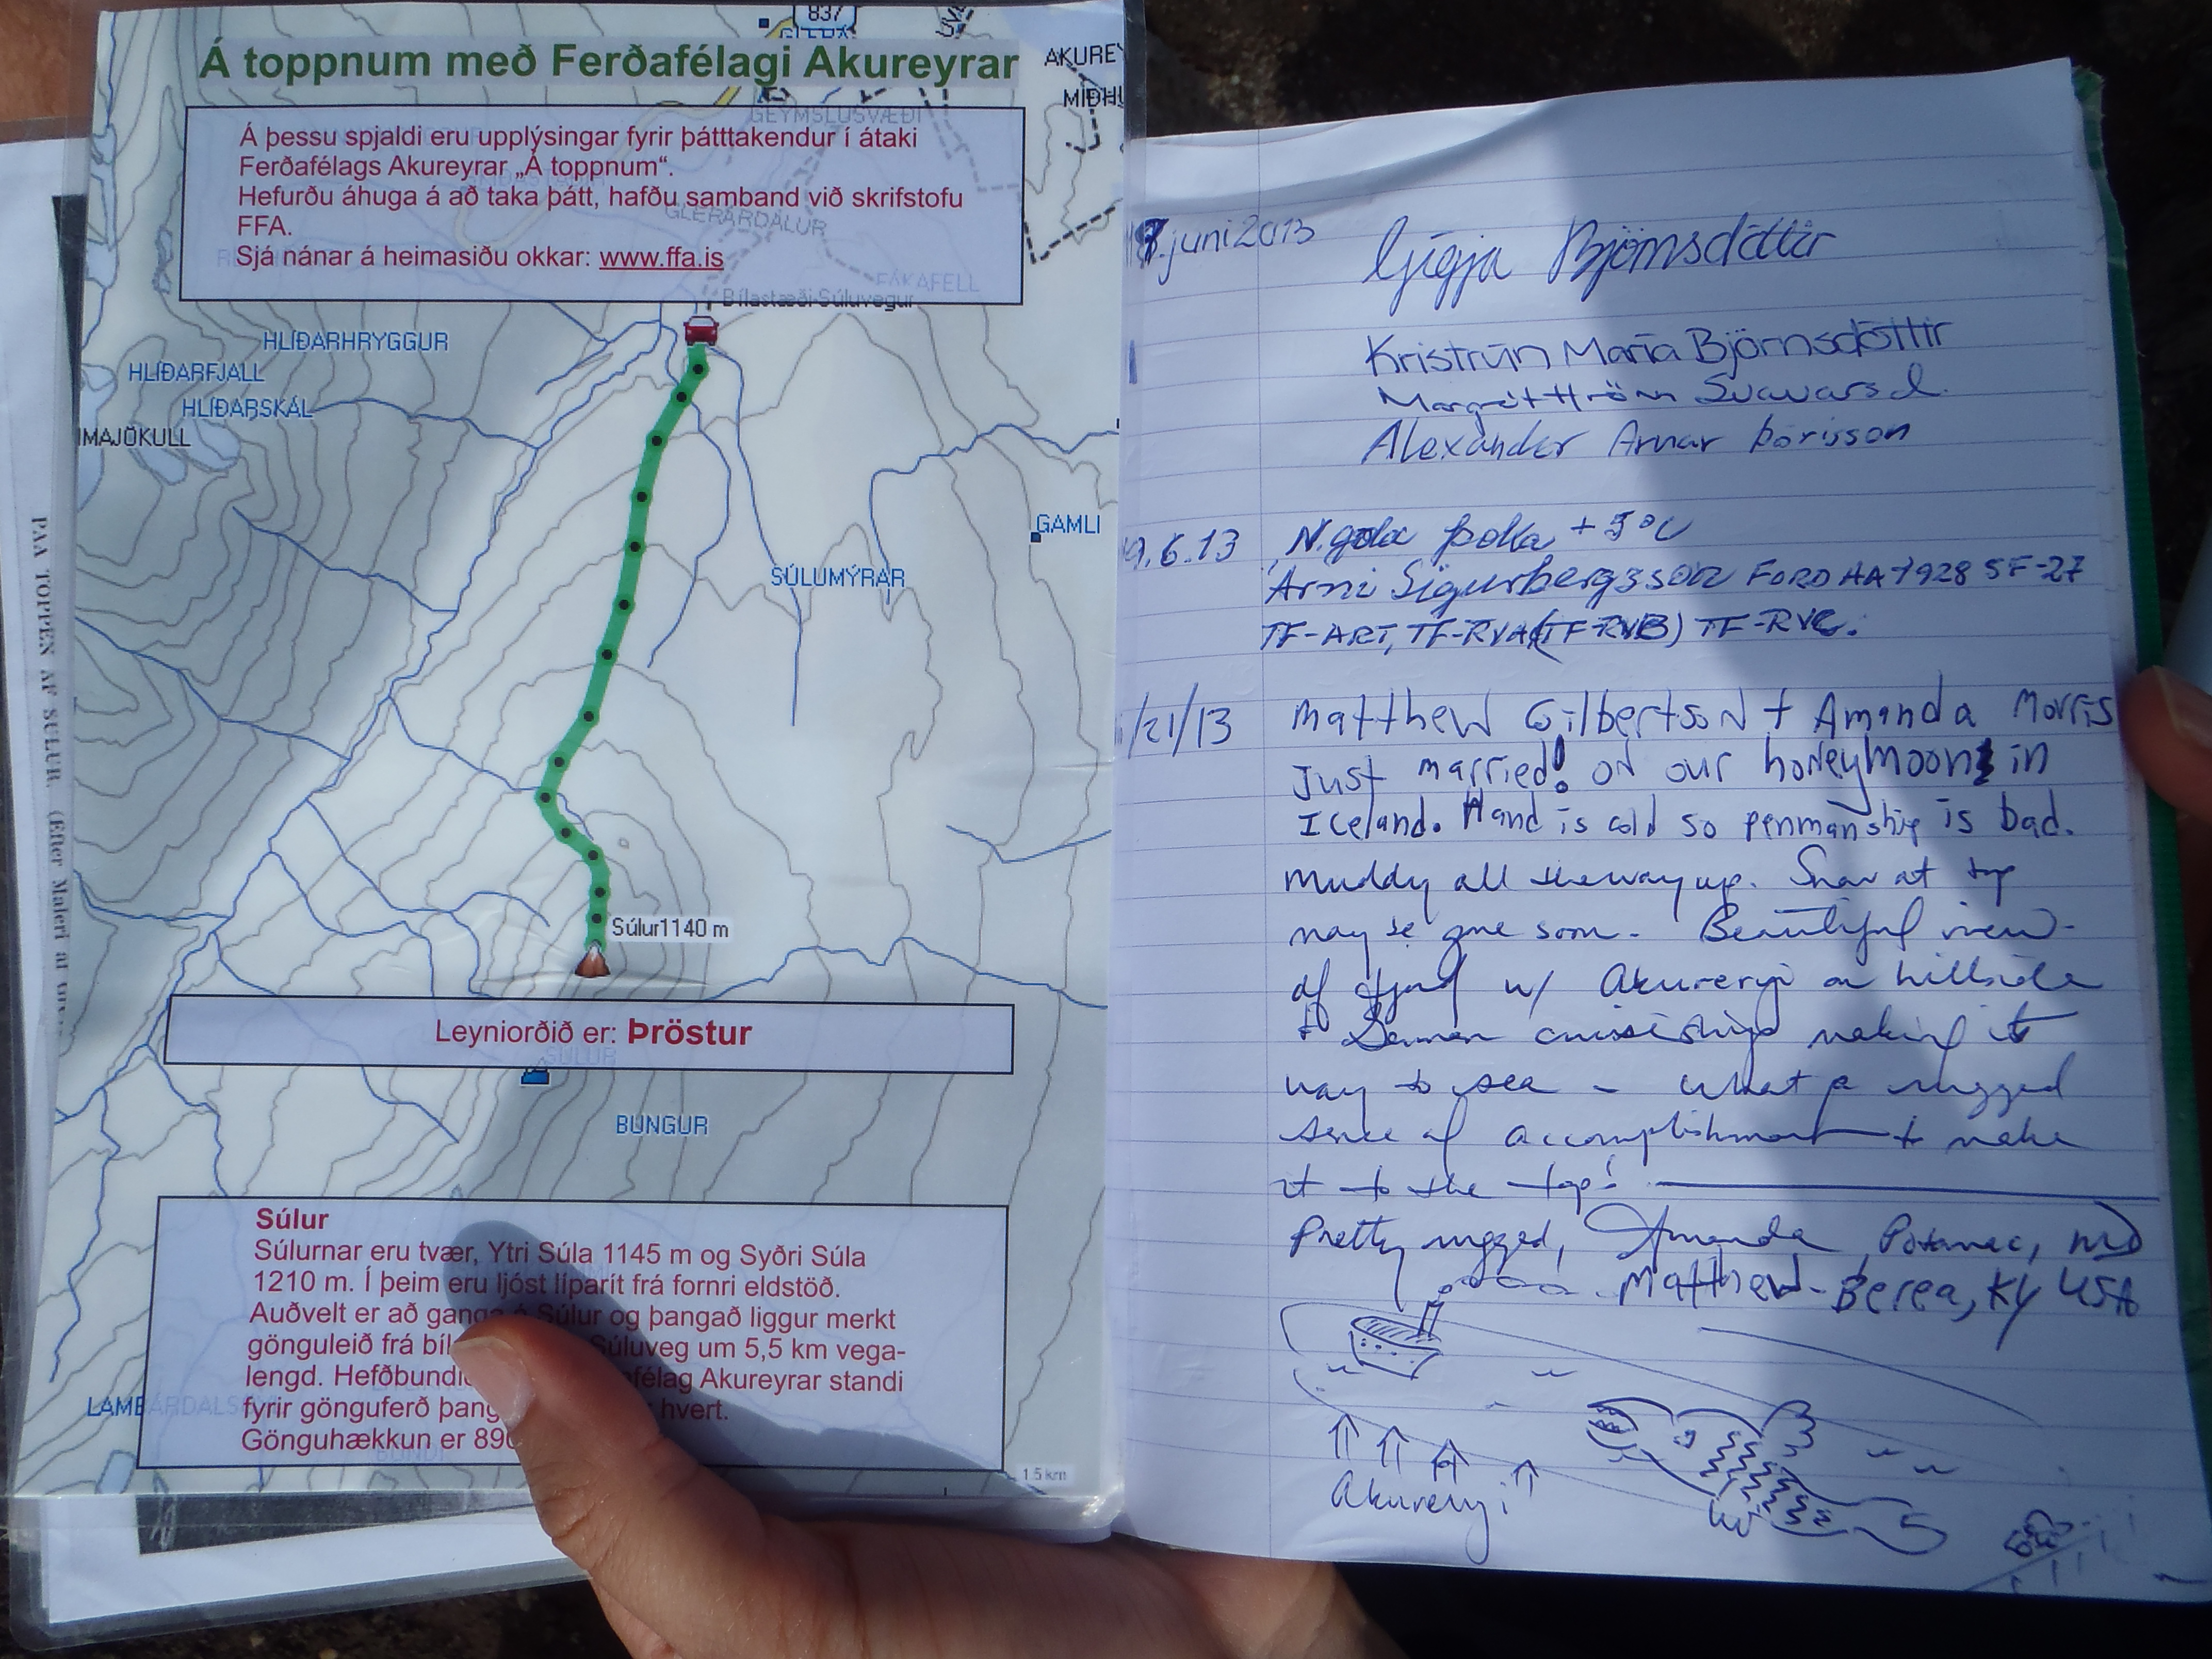 837
Á toppnum með Ferðafélagi Akureyrar
AKUREY
MIÐHU
GEYMSLUSVÆÐI
Á þessu spjaldi eru upplýsingar fyrir þátttakendur í átaki
Ferðafélags Akureyrar „Á toppnum“.
Hefurðu áhuga á að taka þátt, hafðu samband við skrifstofu
FFA.
Sjá nánar á heimasíðu okkar: www.ffa.is
GLERÁRDALUR
FÁKAFELL
Bílastæði-Súluvegur
HLÍÐARHRYGGUR
HLÍÐARFJALL
HLÍÐARSKÁL
IMAJÖKULL
GAMLI
SÚLUMÝRAR
Súlur1140 m
Leyniorðið er: Þröstur
SÚLUR
BUNGUR
Súlur
Súlurnar eru tvær, Ytri Súla 1145 m og Syðri Súla
1210 m. Í þeim eru ljóst líparít frá fornri eldstöð.
Auðvelt er að ganga á Súlur og þangað liggur merkt
gönguleið frá bíl Súluveg um 5,5 km vega-
lengd. Hefðbundi félag Akureyrar standi
fyrir gönguferð þang hvert.
Gönguhækkun er 890
1.5 km
PAA TOPPEN AF SULUR. (Efter Maleri af
juni 2013
Gígja Björnsdóttir
Kristrún María Björnsdóttir
Margrét Hrönn Svavarsd.
Alexander Arnar Þórisson
9.6.13 N.gola þoka +5°C
Árni Sigurbergsson FORD AA 1928 SF-27
TF-ART, TF-RVA (TF-RVB) TF-RVC.
/21/13 Matthew Gilbertson + Amanda Morris
Just married! on our honeymoon in
Iceland. Hand is cold so penmanship is bad.
Muddy all the way up. Snow at top
may be gone soon. Beautiful view
of fjord w/ Akureryi on hillside
+ cruiseship making its
way to sea - What a rugged
sense of accomplishment to make
it to the top!
Pretty rugged, Amanda, Potomac, MD
Matthew - Berea, KY USA
Akureryi